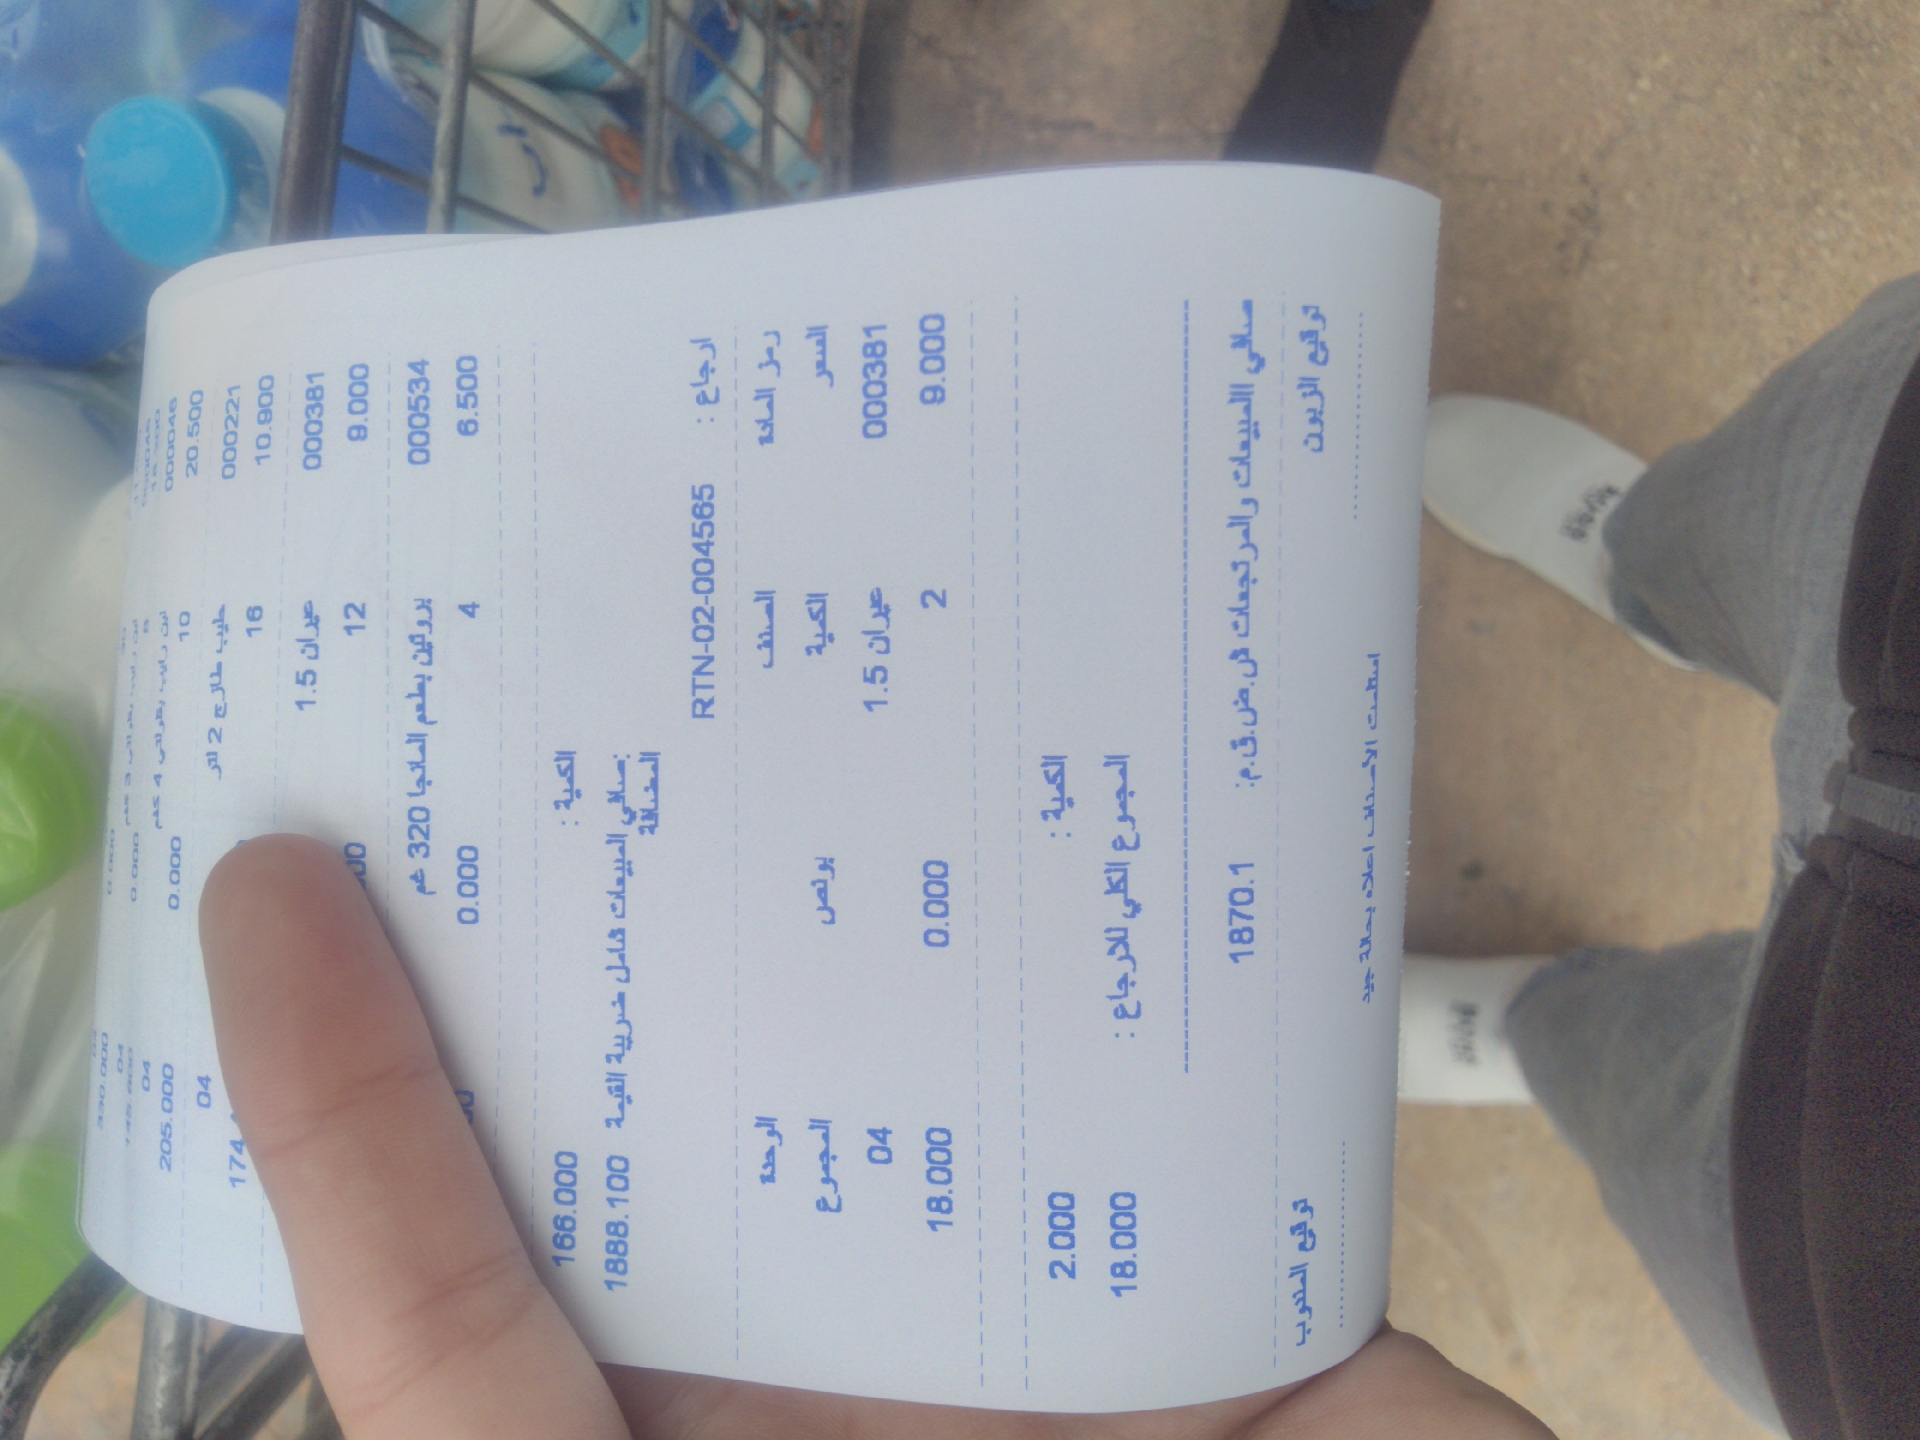 000046
لبن رايب بقراتي 4 كغم
04
20.500 10 0.000 205.000
000221 حليب طازج 2 لتر 04
10.900 16 174
000381 عيران 1.5
9.000 12
000534 بروتين بطعم المانجا 320 غم
6.500 4 0.000
الكمية : 166.000
صافي المبيعات شامل ضريبة القيمة المضافة: 1888.100
ارجاع : RTN-02-004565
رمز المادة الصنف الوحدة
السعر الكمية بونص المجموع
000381 عيران 1.5 04
9.000 2 0.000 18.000
الكمية : 2.000
المجموع الكلي للارجاع : 18.000
صافي المبيعات والمرتجعات ش.ض.ق.م: 1870.1
توقيع الزبون توقيع المندوب
استلمت الاصناف اعلاه بحالة جيد